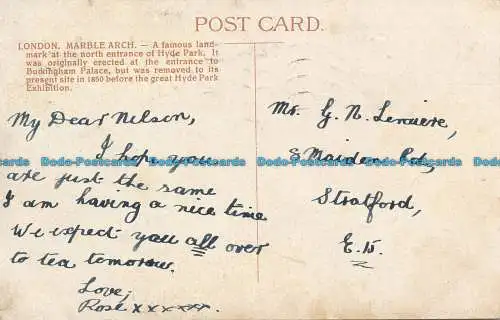 POST CARD.
LONDON, MARBLE ARCH. — A famous land-
mark at the north entrance of Hyde Park. It
was originally erected at the entrance to
Buckingham Palace, but was removed to its
present site in 1850 before the great Hyde Park
Exhibition.
My Dear Nelson,
I hope you
are just the same
I am having a nice time
We expect you all over
to tea tomorrow.
Love,
Rose xxxxxx.
Mr. G. N.
Maiden Rd,
Stratford,
E.15.
Dodo-Postcards Dodo-Postcards Dodo-Postcards Dodo-Postcards